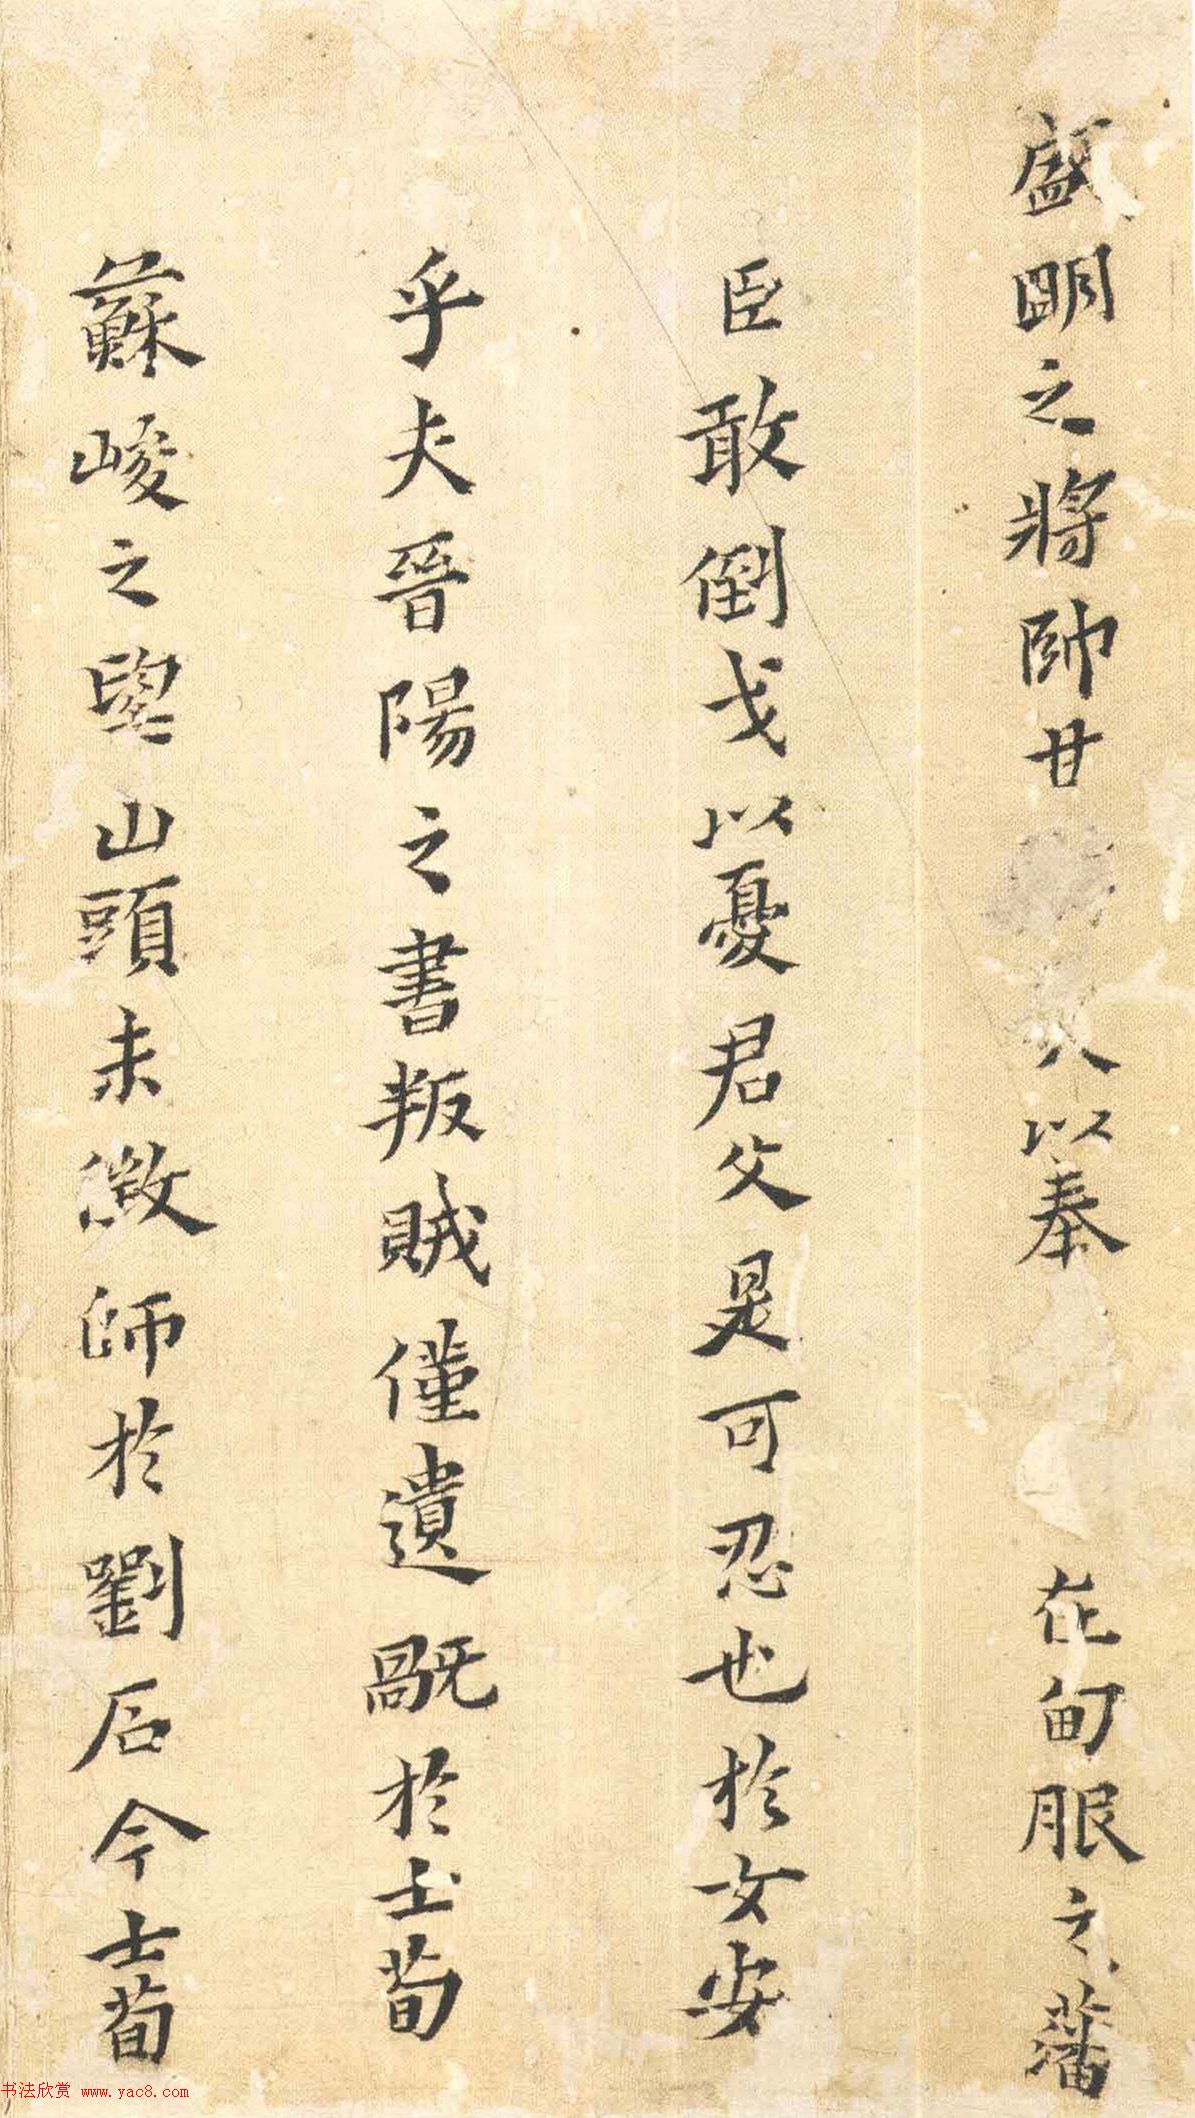 盛明之將帥甘 人以奉 在甸服之藩
臣敢倒戈以憂君父是可忍也於女安
乎夫晉陽之書叛賊僅遺戮於土荀
蘇峻之望山頭未徵師於劉石今士荀
书法欣赏 www.yac8.com